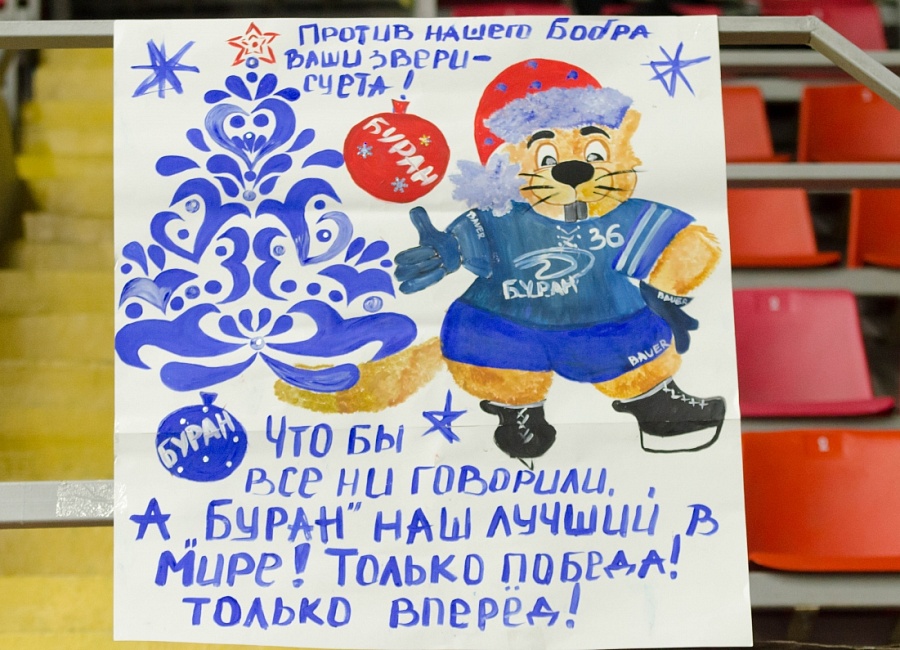 Против нашего Бобра
ваши звери-
суета!
БУРАН
BAUER
36
БУРАН
BAUER
BAUER
БУРАН
Что бы
все ни говорили,
А "БУРАН" наш лучший в
Мире! Только победа!
только вперёд!